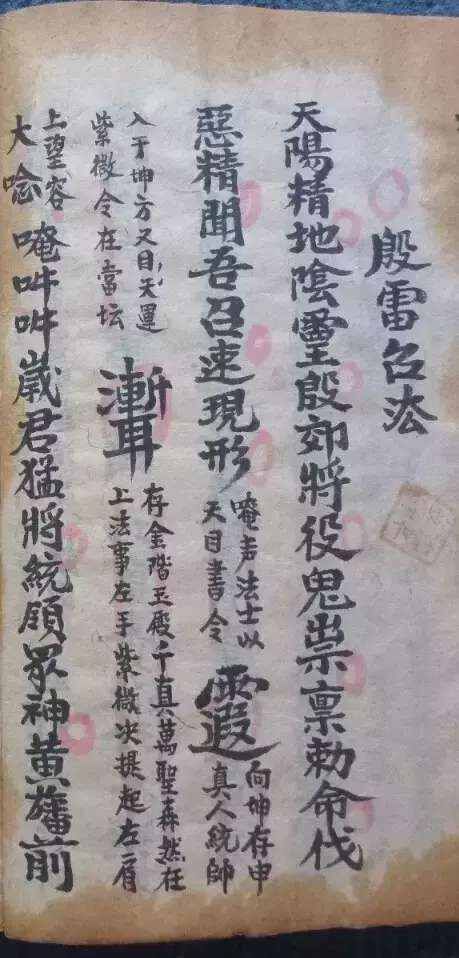 殷雷召法
天陽精地陰靈殷郊將役鬼祟稟勅命伐
惡精聞吾召速現形
唵声法士以
天目書令
霞
向坤存申
真人統帥
入于坤方又目天運
紫微令在當坛
聻
存金階玉殿千真萬聖森然在
上法事左手紫微次提起左肩
上望容
大唸
唵吽吽歲君猛將統領眾神黄旛前